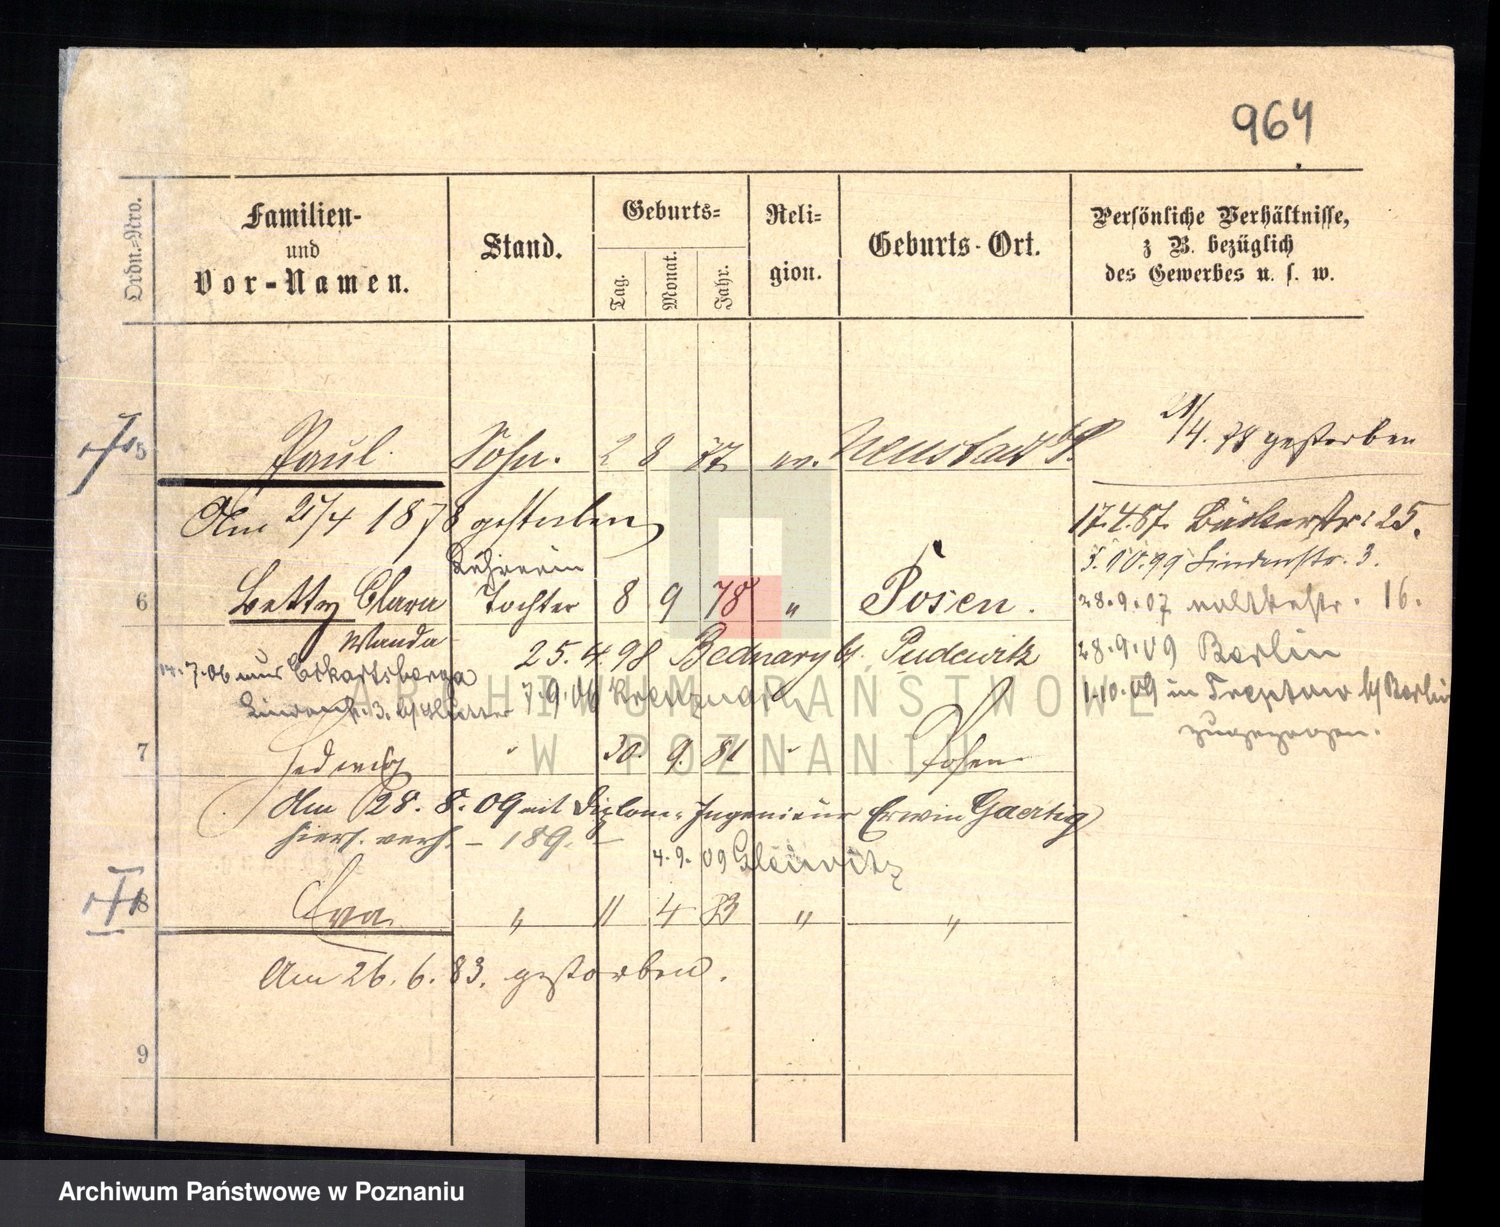 964
Ordn.-Nro.
Familien-
und
Vor-Namen.
Stand.
Geburts-
Tag.
Monat.
Jahr.
Reli-
gion.
Geburts-Ort.
Persönliche Verhältnisse,
z B. bezüglich
des Gewerbes u. s. w.
5 Paul Sohn. 2 8 77 ev. Neustadt 21/4. 78 gestorben
Am 21/4 1878 gestorben
17.4.87. Bäckerstr: 25.
Lehrerin
5.10.99 Lindenstr. 3.
6 Betty Clara Tochter 8 9 78 " Posen.
28.9.07 16.
Wanda
25.4.98 Bednary b/ Pudewitz
28.9.09 Berlin
7.06 aus Eckartsberga
7.9.06 Kreuznach
1.10.09 in Treptow b/ Berlin
zugezogen.
7 Hedwig " 30. 9. 81 " Posen
Am 28. 8. 09 mit Diplom-Ingenieur Erwin Gaertig
hiers. verh. – 189.
4.9.09 Gleiwitz
8 Eva " 11 4 83 " "
Am 26. 6. 83. gestorben.
9
ARCHIWUM PAŃSTWOWE
W POZNANIU
Archiwum Państwowe w Poznaniu